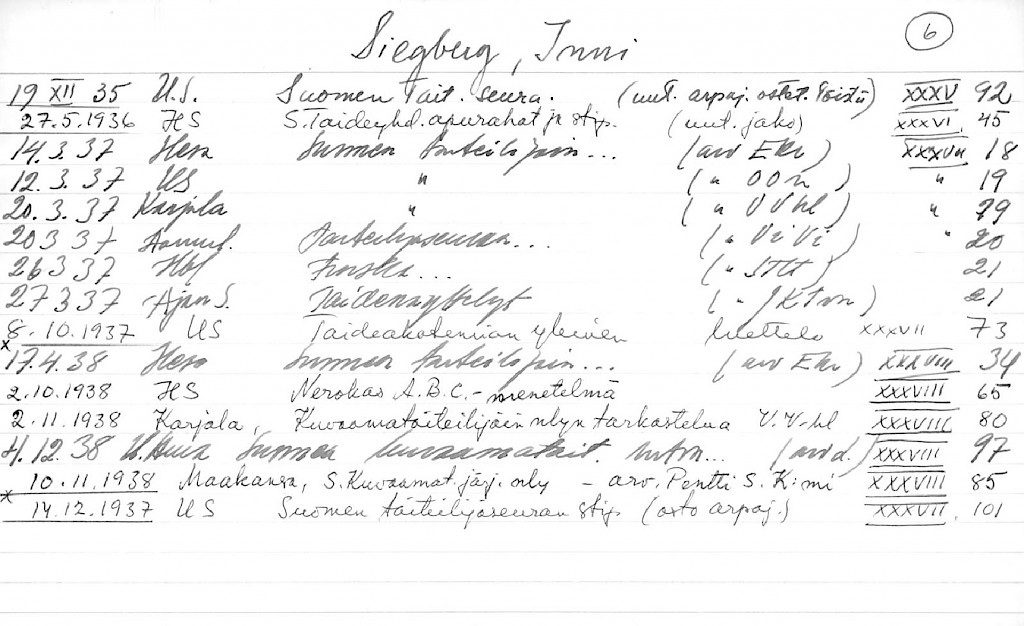 6
Siegberg, Inni
19 XII 35 U.S. Suomen Tait. seura. (uut. arpaj. ostet. töistä) XXXV 92
27.5.1936 HS S. Taideyhd. apurahat ja stip. (uut. jako) XXXVI. 45
14.3.37 Hesa Suomen taiteilijain... (arv EKr) XXXVII 18
12.3.37 US " (" OOn) " 19
20.3.37 Karjala " (" VVhl) " 79
20 3 37 Aamul. Taiteilijaseuran... (" ViVi) " 20
26 3 37 Hbl Finska... 21
27 3 37 Ajan S. Taidenäyttelyt 21
x 8.10.1937 US Taideakatemian yleinen luettelo XXXVII 73
17.4.38 Hesa Suomen taiteilijain... (arv EKr) XXXVIII 34
2.10.1938 HS Nerokas A.B.C.-menetelmä XXXVIII 65
2.11.1938 Karjala, Kuvaamataiteilijäin nlyn tarkastelua V.V-hl XXXVIII 80
4.12.38 Suomen XXXVIII 97
x 10.11.1938 Maakansa, S. Kuvaamat. järj. nly – arv. Pentti S. K:mi XXXVIII 85
14.12.1937 US Suomen täiteilijaseuran stip (osto arpaj.) XXXVII. 101